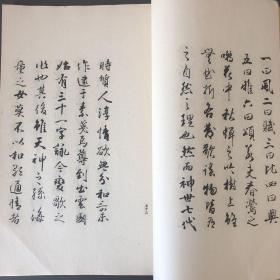 一曰風二曰賦三曰比四曰興
五曰雅六曰頌若夫春鶯之
囀花中秋蟬之吟樹上雖
無曲折各發歌謠物皆有
之自然之理也然而神世七代
時質人淳情欲無分和哥未
作逮于素戔烏尊到出雲國
始有三十一字詠今反歌之
作也其後雖天神之孫海
童之女莫不以和歌通情者